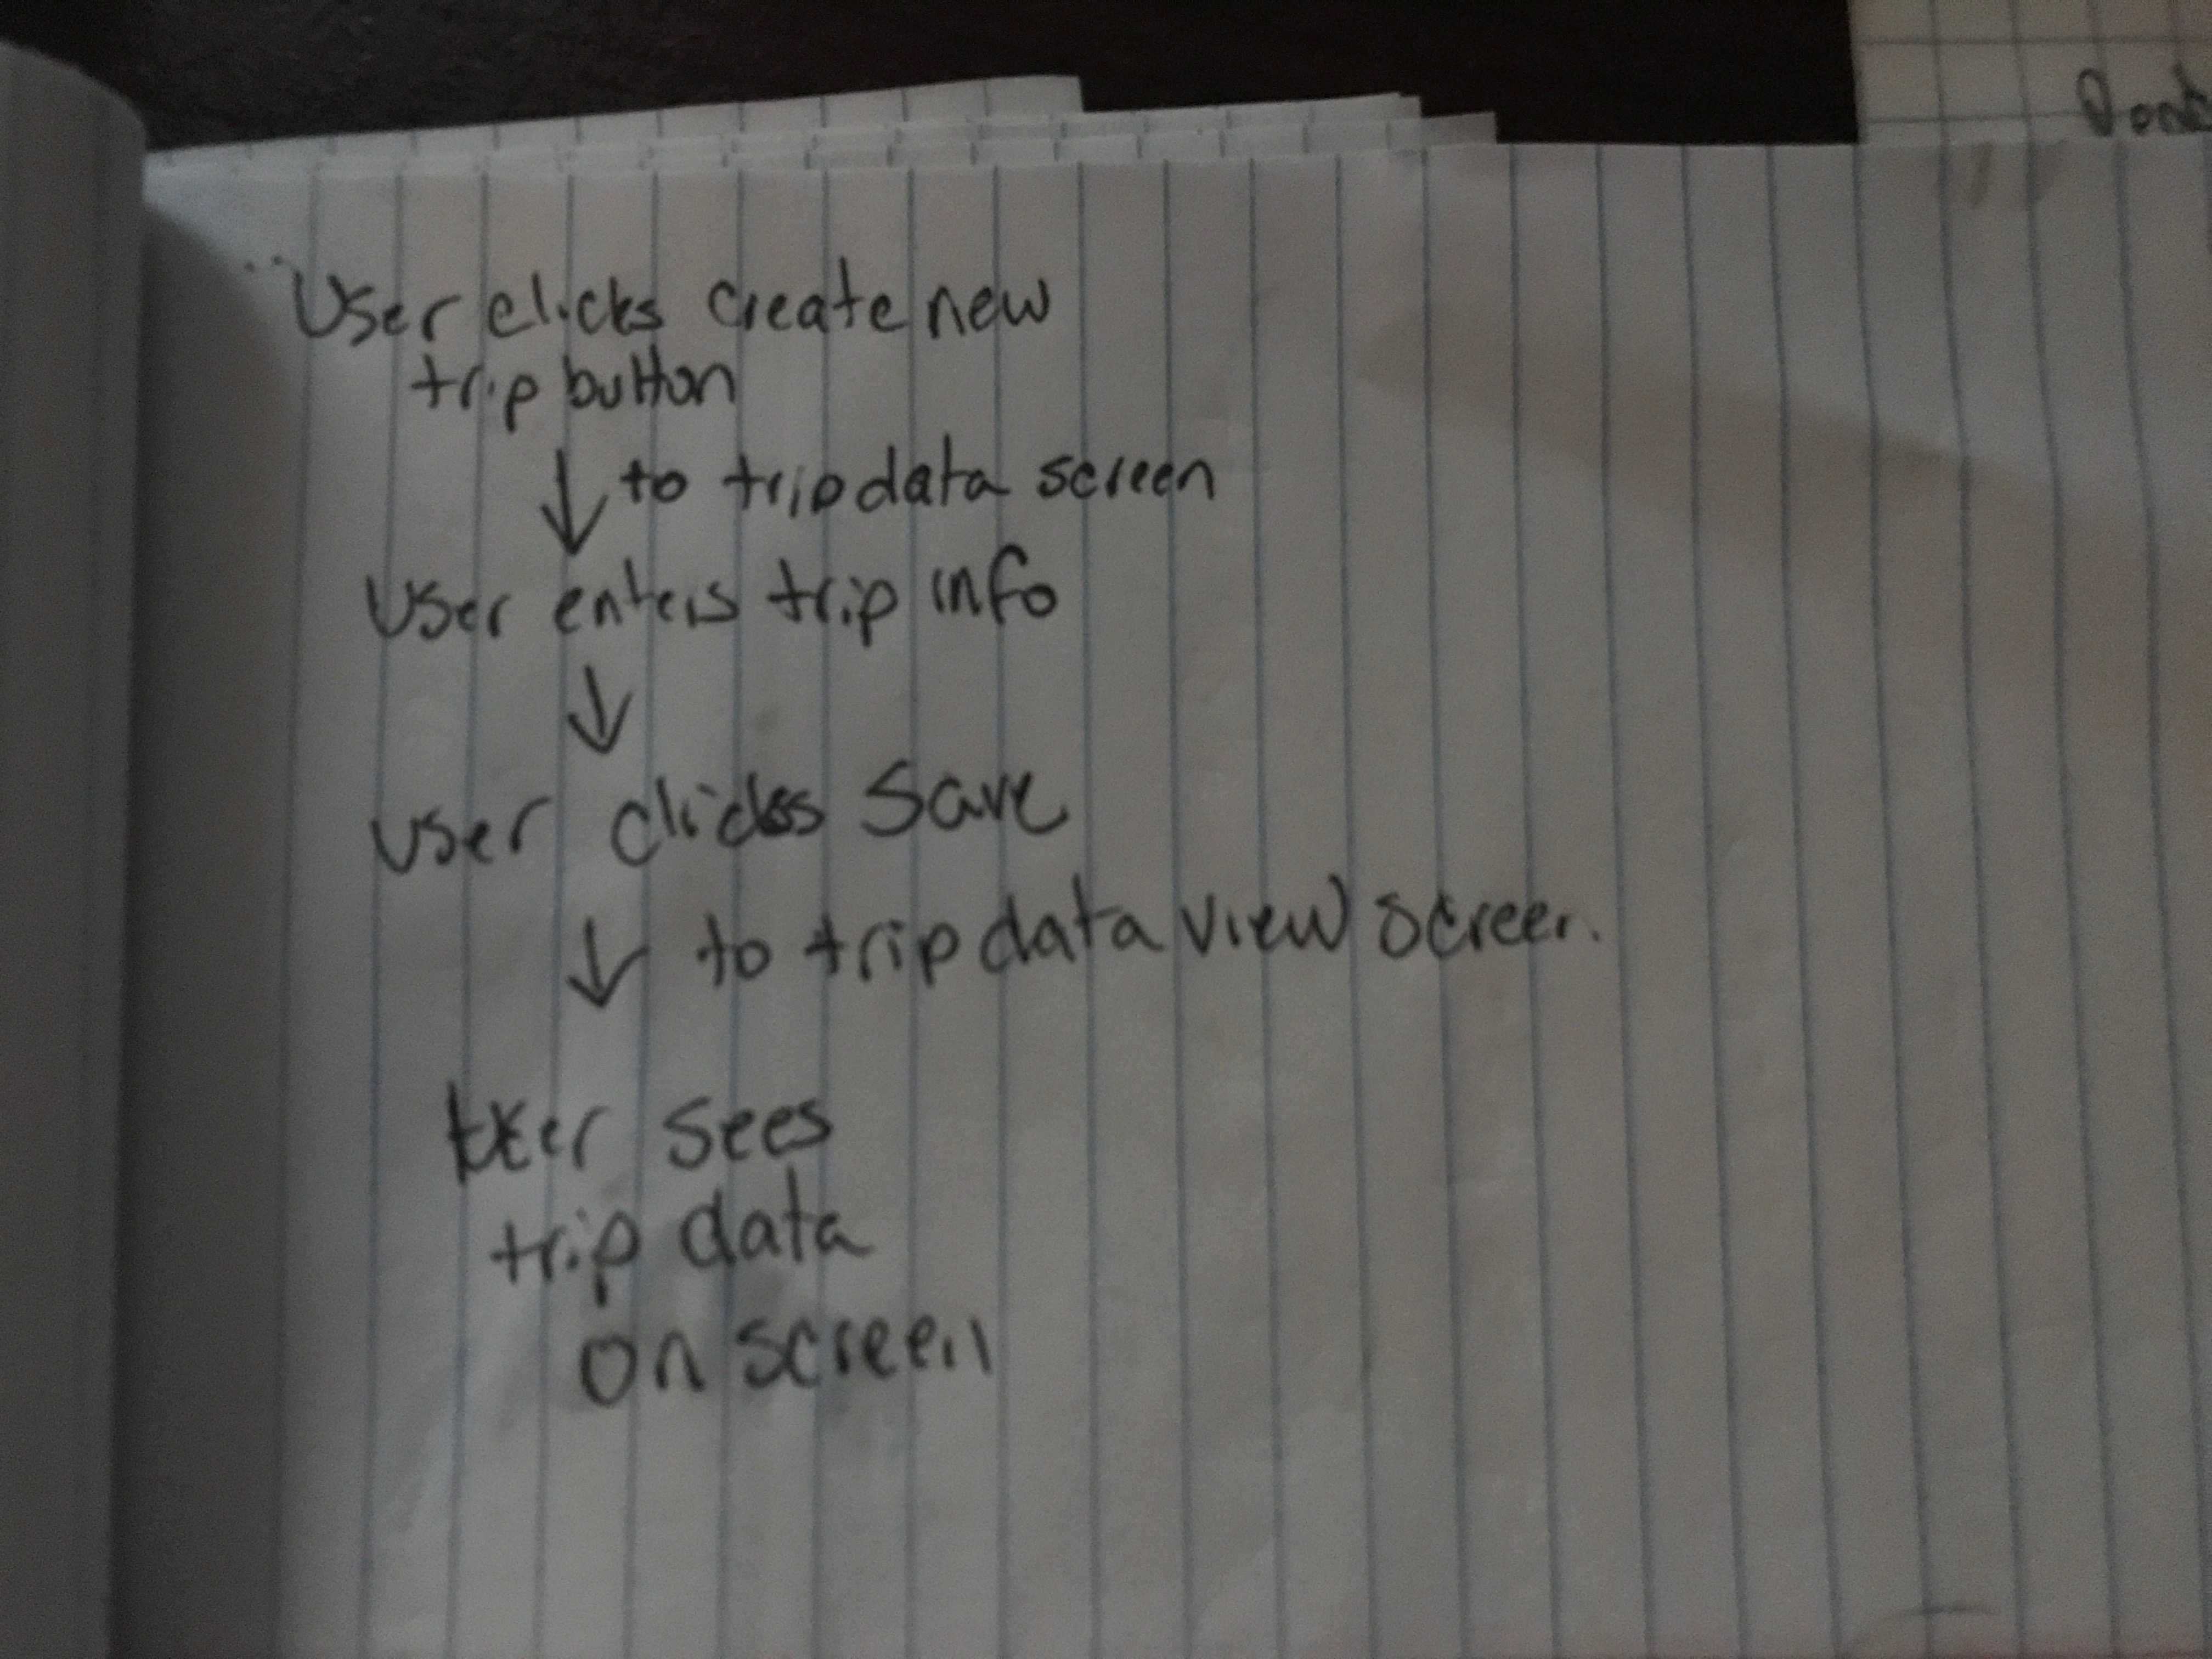 User clicks create new
trip button
↓ to trip data screen
User enters trip info
↓
User clicks Save
↓ to trip data view screen.
User sees
trip data
on screen